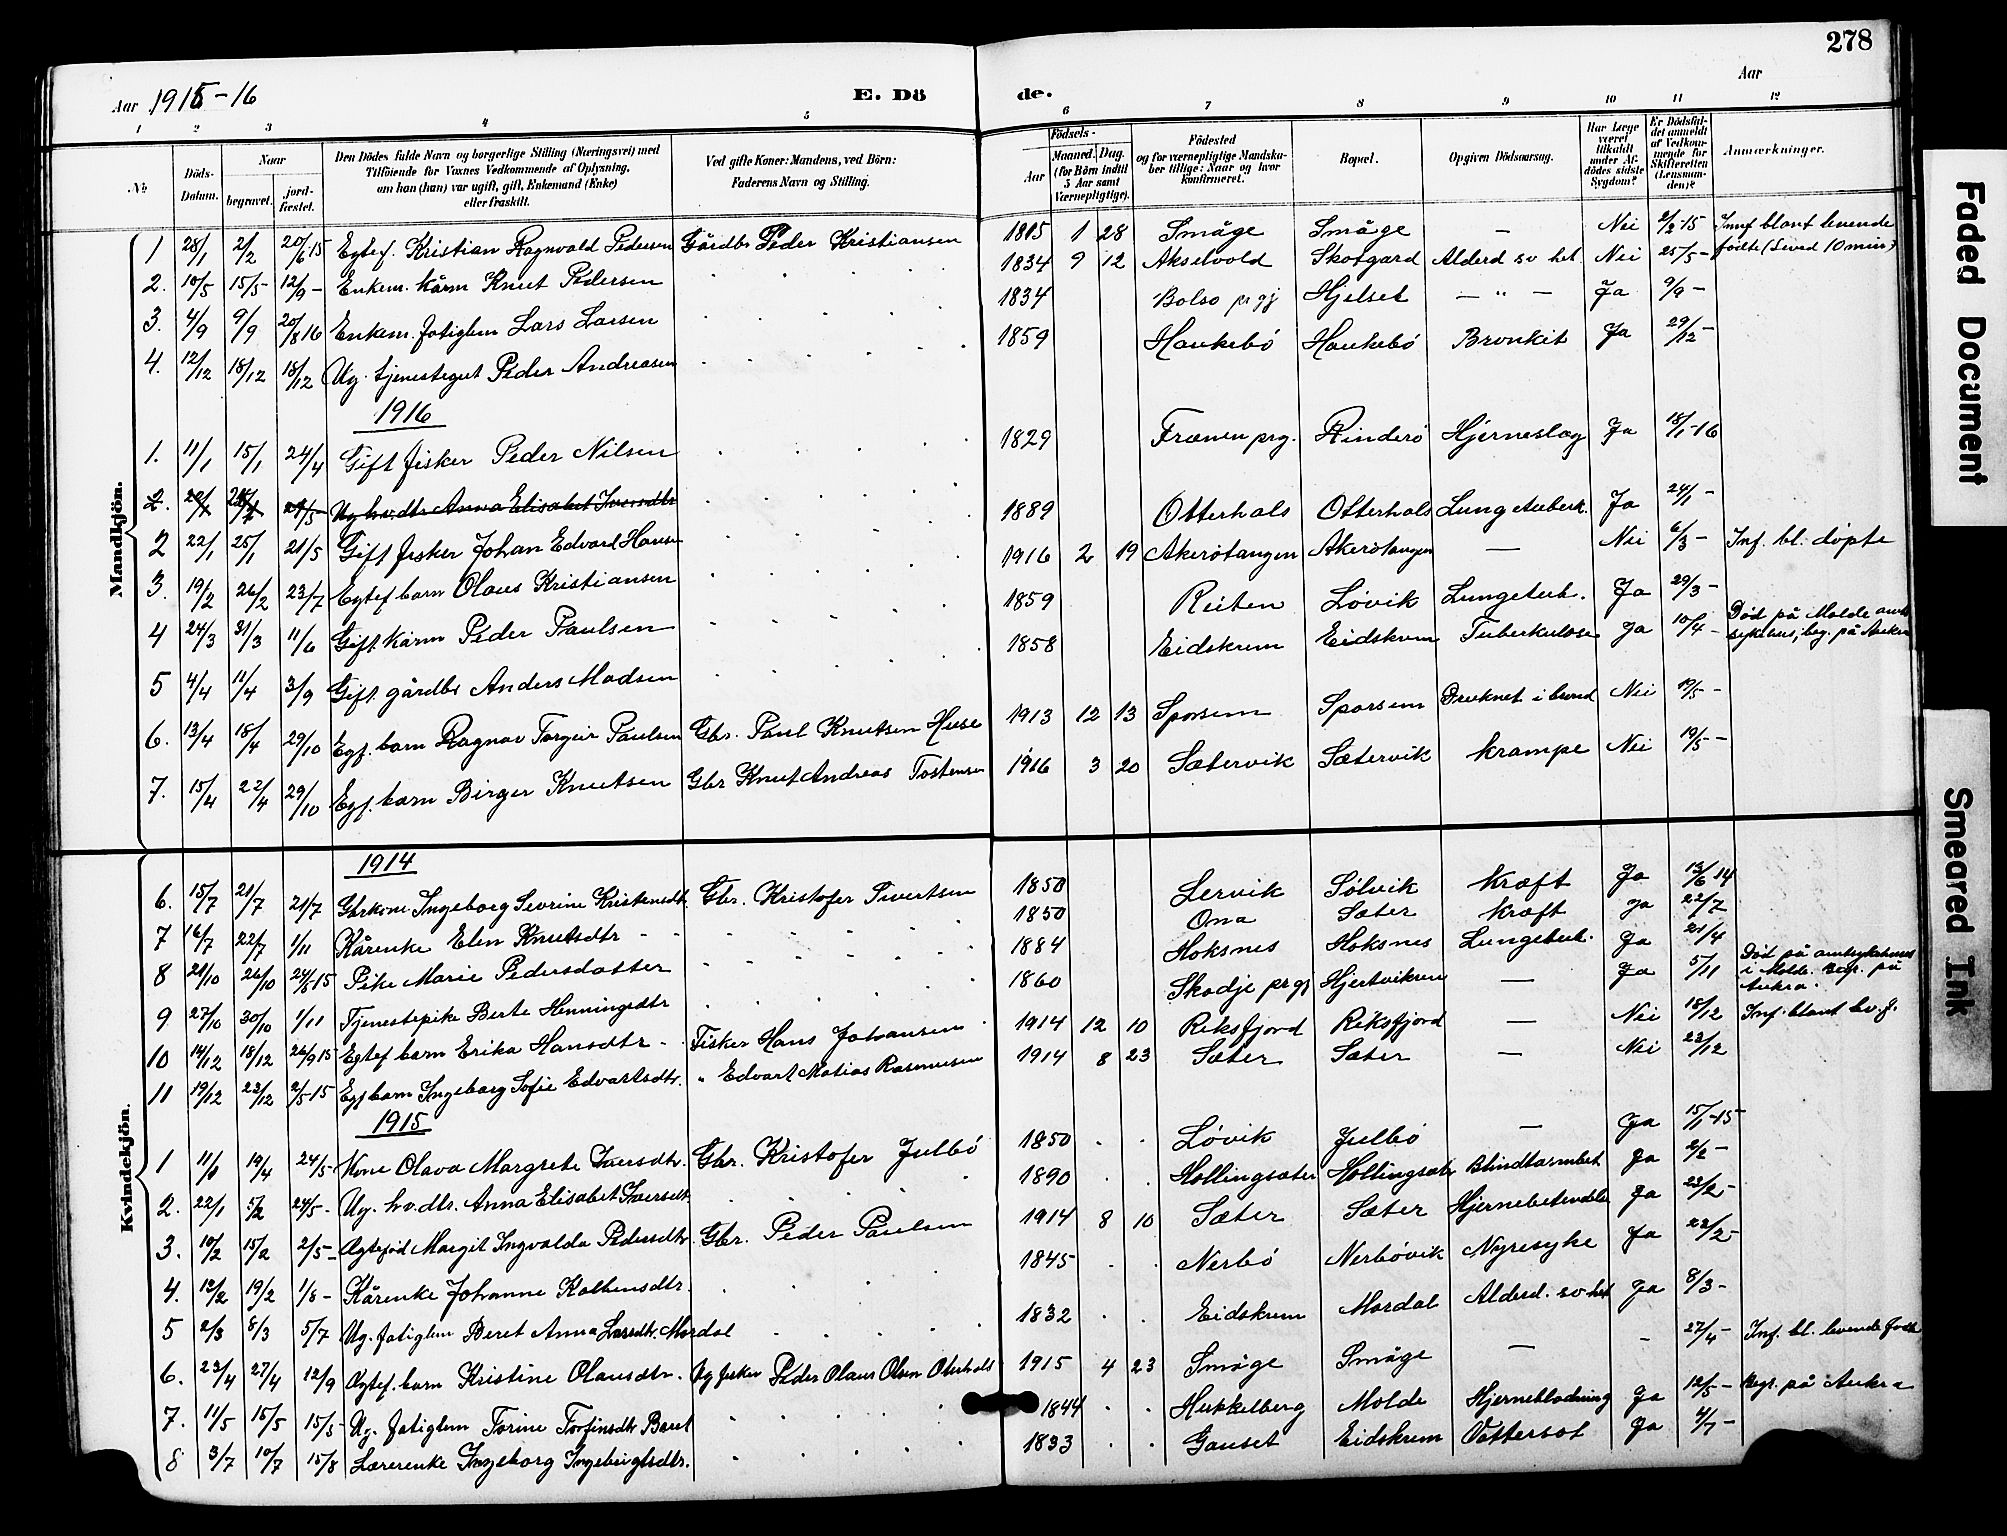 278
Aar 1915-16
E. Dö
de.
Aar
1 2 3 4 5 6 7 8 9 10 11 12
№
Döds-Datum.
Naar
begravet.
jordfæstet.
Den Dödes fulde Navn og borgerlige Stilling (Næringsvei) med
Tilföiende for Voxnes Vedkommende af Oplysning,
om han (hun) var ugift, gift, Enkemand (Enke)
eller fraskilt.
Ved gifte Koner: Mandens, ved Börn:
Faderens Navn og Stilling.
Födsels-
Aar
Maaned. Dag.
(for Börn indtil
5 Aar samt
Værnepligtige).
Födested
og for værnepligtige Mandskaber tillige: Naar og hvor
konfirmeret.
Bopæl.
Opgiven Dödsaarsag.
Har Læge
været
tilkaldt
under Afdödes sidste
Sygdom?
Er Dödsfaldet anmeldt
af Vedkommende for
Skifteretten
(Lensmanden)?
Anmærkninger.
Mandkjön.
1 28/1 2/2 20/6 15 Egtef. Kristian Ragnvald Pedersen Gårdbr Peder Kristiansen 1815 1 28 Småge Småge — Nei 2/2-15 Innf blant levende fødte (Leved 10 min)
2. 10/5 15/5- 12/9- Enkem. kårm Knut Pedersen 1834 9 12 Akselvold Skotgard Alderd sv het Nei 25/5-
3. 4/9 9/9 20/8 16 Enkem. fatiglem Lars Larsen 1834 Bolsø prgj Hjelset — " — Ja 9/9-
4. 12/12 18/12 18/12 Ug. tjenestegut Peder Andreasen 1859 Haukebø Haukebø Bronkit Ja 29/12-
1916
1. 11/1 15/1 24/4 Gift fisker Peder Nilsen 1829 Frænen prg. Rinderø Hjerneslag Ja 18/1-16
2. 21/5 Ug hv.dtr Anna Elisabet Iversdtr
2 22/1 25/1 21/5 Gift fisker Johan Edvard Hansen 1889 Otterhals Otterhals Lungetuberk. Ja 24/1-
3. 19/2 26/2 23/7 Egtef barn Olaus Kristiansen 1916 2 19 Akerøtangen Akerøtangen — Nei 6/3- Inf. bl. døpte
4 24/3 31/3 11/6 Gift kårm Peder Paulsen 1859 Reiten Løvik Lungetub. Ja 29/3-
5 4/4 11/4 3/9 Gift gårdbr Anders Madsen 1858 Eidskrem Eidskrem Tuberkulose ja 10/4- Død på Molde amtsykehus; beg. på Aukra
6. 13/4 18/4 29/10 Egf. barn Ragnar Torgeir Paulsen Gbr. Paul Knutsen Huse 1913 12 13 Sporsem Sporsem Druknet i brønd Nei
7. 15/4 22/4 29/10 Egf. barn Birger Knutsen Gbr Knut Andreas Tostensen 1916 3 20 Sætervik Sætervik krampe Nei 19/5-
Kvindekjön.
1914
6. 15/7 21/7 21/7 Gbrkone Ingeborg Sevrine Kristensdtr. Gbr. Kristofer Sivertsen 1850 Lervik Sølvik kræft Ja 13/6 14
7 16/7 22/7 1/11 Kårenke Elen Knutsdtr 1850 Ona Sæter kræft ja 22/7
8 21/10 26/10 24/5-15 Pike Marie Pedersdatter 1884 Hoksnes Hoksnes Lungetub. ja 21/4
9 27/10 30/10 1/11 Tjenestepike Berte Henningsdtr 1860 Skodje prgj Hjertvikren — Ja 5/11 Død på amtsykehuset i Molde. Begr. på Aukra.
10 14/12 18/12 26/9 15 Egtef barn Erika Hansdtr - Fisker Hans Johansen 1914 12 10 Reksfjord Reksfjord — Nei 18/12 Inf. blant lev f.
11 19/12 23/12 2/5-15 Egf barn Ingeborg Sofie Edvartsdtr. " Edvart Matias Rasmussen 1914 8 23 Sæter Sæter — Nei 23/12
1915
1 11/1 19/4 24/5- Kone Olava Margrete Iversdtr. Gbr. Kristofer Julbø 1850 Løvik Julbø — Ja 15/1-15-
2. 22/1 5/2 24/5- Ug. hv.dtr. Anna Elisabet Iversdtr. 1890 Hollingsæter Hollingsæter Blindtarmbet ja 2/2-
3. 10/2 15/2 2/5- Ægtefød Margit Ingvalda Pedersdtr. Gbr. Peder Paulsen 1914 8 10 Sæter Sæter Hjernebetendelse Ja 23/2-
4. 12/2 19/2 1/8- Kårenke Johanne Kolbensdtr. 1845 Nerbø Nerbøvik Nyresyke Ja 22/2-
5 2/3 8/3 5/7 Ug. fatiglem Beret Anna Larsdtr. Mordal 1832 Eidskrem Mordal Alderd. sv het ja 8/3-
6. 23/4 27/4 12/9 Ægtef. barn Kristine Olausdtr. Ug fisker Peder Olaus Olsen Oterhals 1915 4 23 Småge Småge — - 27/4- Inf. bl. levende fødte
7. 11/5 15/5 15/5- Ug. fatiglem Torine Torfinsdtr Baret 1844 Hukkelberg Molde Hjerneblødning ja 12/5- Begr. på Aukra
8 3/7 10/7 15/8 Lærerenke Ingeborg Ingebrigtsdtr. 1833 Gauset Eidskrem Vattersot ja 4/7-
Faded Document
Smeared Ink